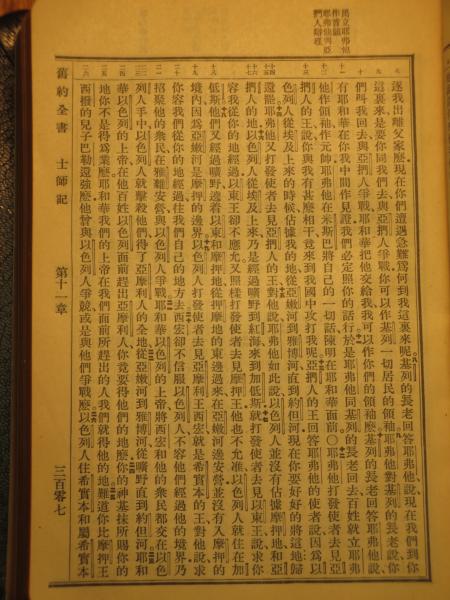 立耶弗他
作首領
耶弗他與亞
捫人辯理
逐我出離父家麽現在你們遭遇急難爲何到我這裏來呢基列的長老回答耶弗他說現在我們到你
這裏來是要你同我們去與亞捫人爭戰你可以作基列一切居民的領袖耶弗他對基列的長老說你
們叫我回去與亞捫人爭戰耶和華把他交給我我可以作你們的領袖麽基列的長老回答耶弗他說
有耶和華在你我中間作見證我們必定照你的話行於是耶弗他同基列的長老回去百姓就立耶弗
他作領袖作元帥耶弗他在米斯巴將自己的一切話陳明在耶和華面前○耶弗他打發使者去見亞
捫人的王說你與我有甚麽相干竟來到我國中攻打我呢亞捫人的王回答耶弗他的使者說因爲以
色列人從埃及上來的時候佔據我的地從亞嫩河到雅博河直到約但河現在你要好好的將這地歸
還罷耶弗他又打發使者去見亞捫人的王對他說耶弗他如此說以色列人並沒有佔據摩押地和亞
捫人的地以色列人從埃及上來乃是經過曠野到紅海來到加低斯就打發使者去見以東王說求你
容我從你的地經過以東王卻不應允又照樣打發使者去見摩押王他也不允准以色列人就住在加
低斯他們又經過曠野遶着以東和摩押地從摩押地的東邊過來在亞嫩河邊安營並沒有入摩押的
境內因爲亞嫩河是摩押的邊界以色列人打發使者去見亞摩利王西宏就是希實本的王對他說求
你容我們從你的地經過往我們自己的地方去西宏卻不信服以色列人不容他們經過他的境界乃
招聚他的衆民在雅雜安營與以色列人爭戰耶和華以色列的上帝將西宏和他的衆民都交在以色
列人手中以色列人就擊殺他們得了亞摩利人的全地從亞嫩河到雅博河從曠野直到約但河耶和
華以色列的上帝在他百姓以色列面前趕出亞摩利人你竟要得他們的地麽你的神基抹所賜你的
地你不是得爲業麽耶和華我們的上帝在我們面前所趕出的人我們就得他的地難道你比摩押王
西撥的兒子巴勒還強麽他曾與以色列人爭競或是與他們爭戰麽以色列人住希實本和屬希實本
舊約全書 士師記 第十一章 三百零七